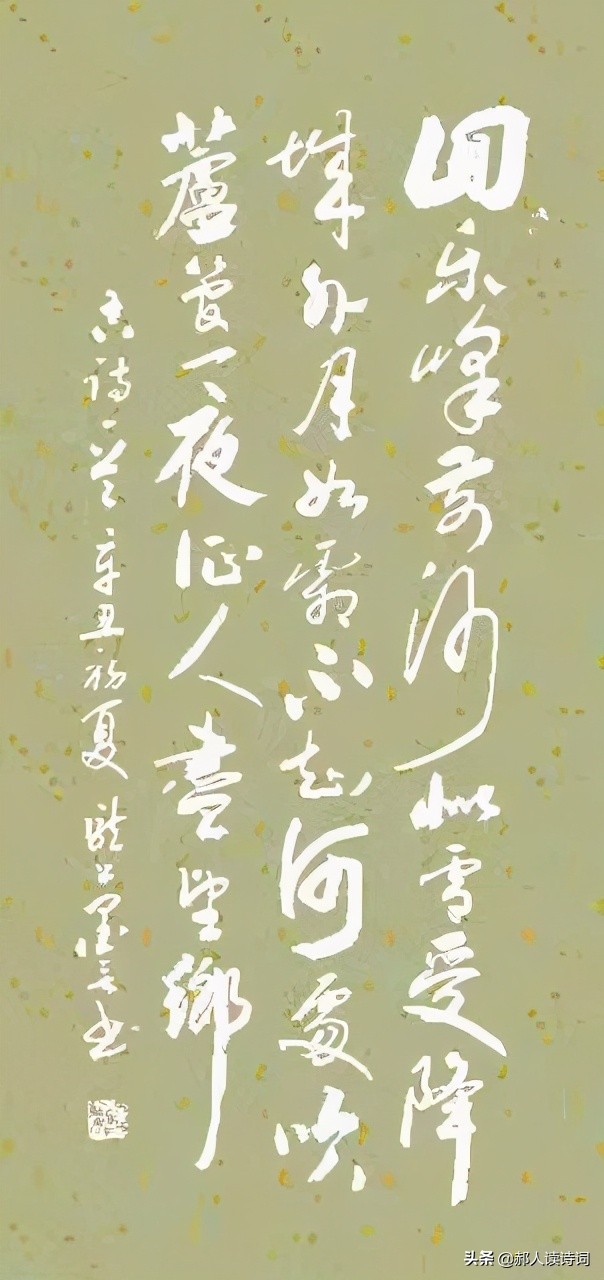 回乐峰前沙似雪受降
城外月如霜不知何處吹
蘆管一夜征人盡望鄉
古诗一首辛丑初夏 书
头条 @郝人读诗词